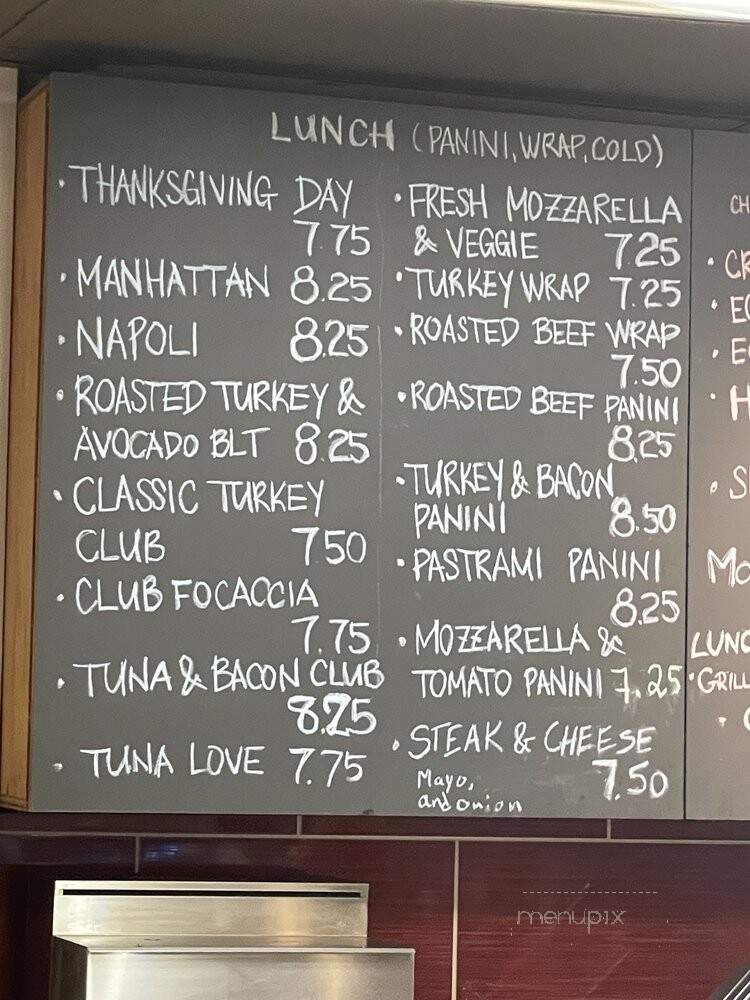 LUNCH (PANINI, WRAP, COLD)
· THANKSGIVING DAY
7.75
· MANHATTAN 8.25
· NAPOLI 8.25
· ROASTED TURKEY &
AVOCADO BLT 8.25
· CLASSIC TURKEY
CLUB 7.50
· CLUB FOCACCIA
7.75
· TUNA & BACON CLUB
8.25
· TUNA LOVE 7.75
· FRESH MOZZARELLA
& VEGGIE 7.25
· TURKEY WRAP 7.25
· ROASTED BEEF WRAP
7.50
· ROASTED BEEF PANINI
8.25
· TURKEY & BACON
PANINI 8.50
· PASTRAMI PANINI
8.25
· MOZZARELLA &
TOMATO PANINI 7.25
· STEAK & CHEESE
7.50
Mayo,
and onion
menupix